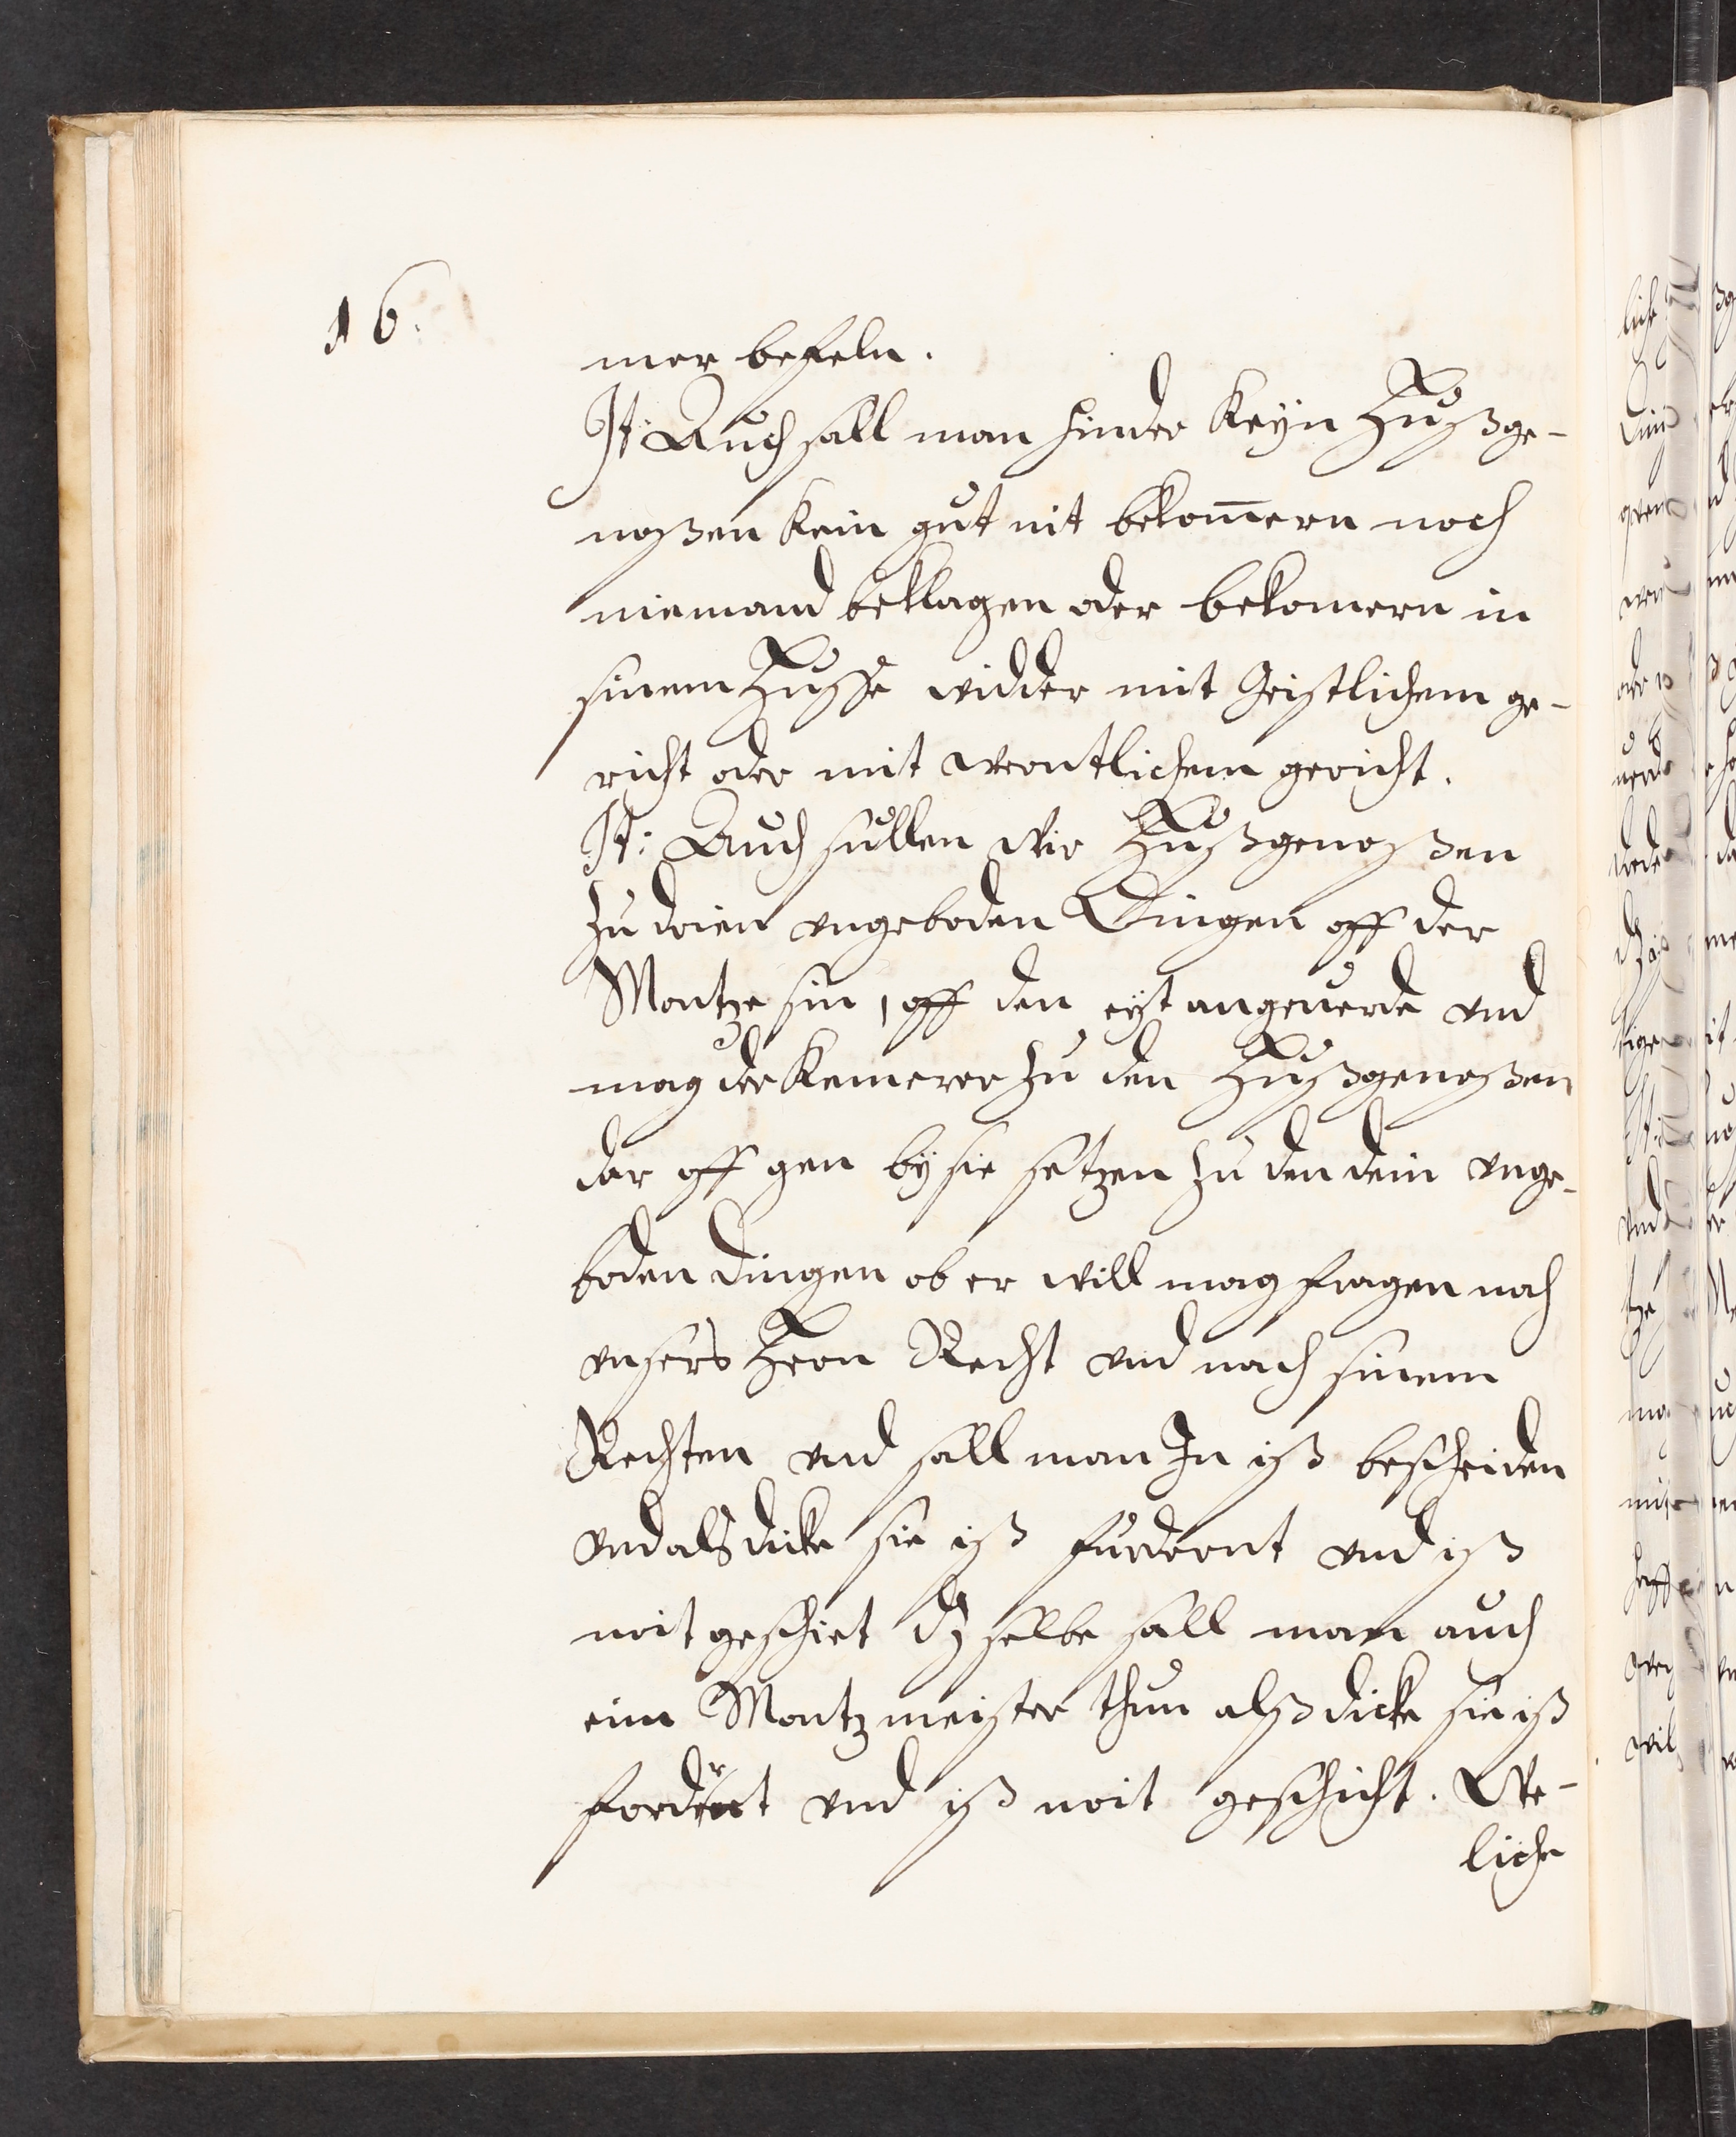 16.
mer befeln.
It: Auch sall man hinder keyn Hußge-
noßen kein gut nit bekom̄ern noch
niemand beklagen oder bekomern in
sinem Huse widder mit Geistlichem ge-
richt oder mit werntlichem gericht.
It: Auch sullen wir Hußgenoßen
zu drien ungeboden Dingen off der
Montze sin, off den eyt angeuerde vnd
mag der Kemerer zu den Hußgenoßen
dar off gen by sie setzen zu den drin vnge-
boden dingen ob er will mag fragen nach
vnsers Hern Recht vnd nach sinem
Rechten vnd sall man In iß bescheiden
vnd als dicke sie iß furdernt vnd iß
noit geschiet dz selbe sall man auch
eim Montzmeister thun alß dicke sie iß
fordert vnd iß noit geschicht. We-
liche